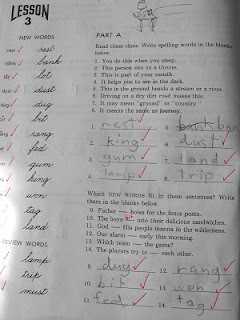 LESSON
3
NEW WORDS
rest rest
bank
lot
dust dust
dug dug
bit
rang
fed
gum
king
won
tag
land
REVIEW WORDS
lamp
trip
must
PART A
Read these clues. Write spelling words in the blanks
below.
1. You do this when you sleep.
2. This person sits on a throne.
3. This is part of your mouth.
4. It helps you to see in the dark.
5. This is the ground beside a stream or a river.
6. Driving on a dry dirt road makes this.
7. It may mean "ground" or "country."
8. It means the same as journey.
1. rest
2. king
3. gum
4. lamp
5. bank
6. dust
7. land
8. trip
Which NEW WORDS fit in these sentences? Write
them in the blanks below.
9. Father — holes for the fence posts.
10. The boys — into their delicious sandwiches.
11. God — His people manna in the wilderness.
12. Our alarm — early this morning.
13. Which team — the game?
14. The players try to — each other.
9. dug
10. bit
12. rang
13. won
14. tag